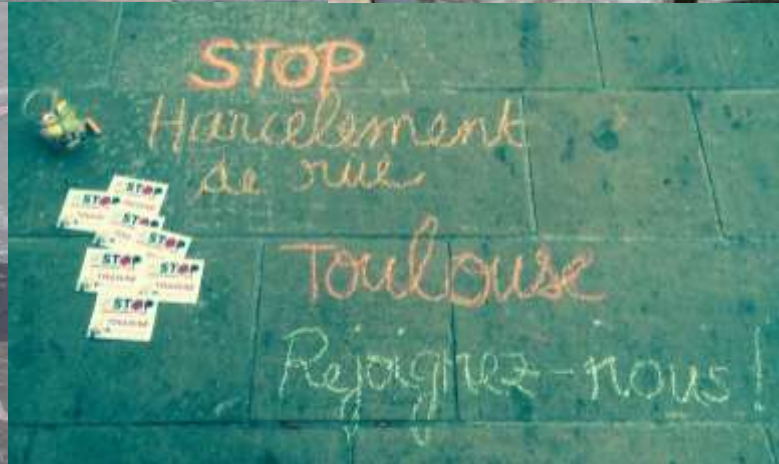 STOP
Harcèlement
de rue
Toulouse
Rejoignez-nous!
STOP
STOP
STOP
STOP
STOP
STOP
TOULOUSE
STOP
TOULOUSE